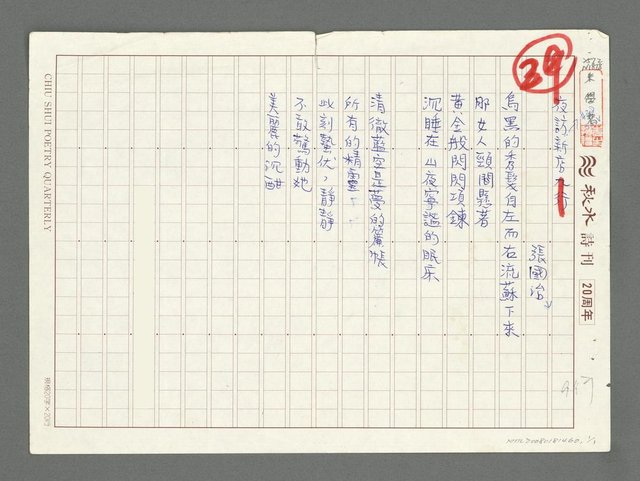 39
秋水詩刊 20周年
夜訪新店
張國治
烏黑的秀髮自左而右流蘇下來
那女人頸間懸著
黃金般閃閃項鍊
沉睡在山夜寧謐的眠床
清澈藍空是夢的簾帳
所有的精靈
此刻蟄伏，靜靜
不敢驚動她
美麗的沉酣
CHIU SHUI POETRY QUARTERLY